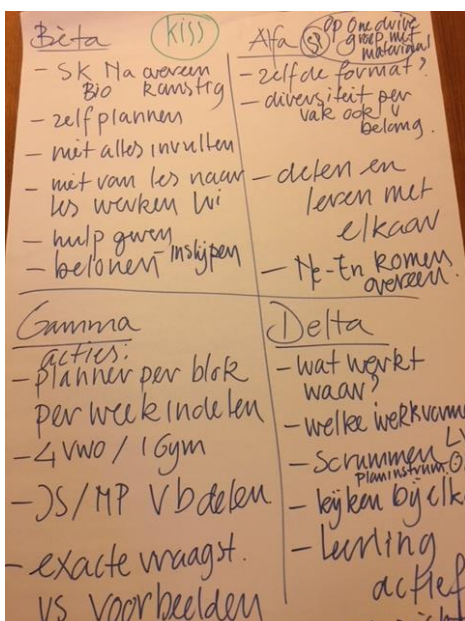 Bèta
KISS
- SK Na overeen
Bio komstig
- zelf plannen
- niet alles invullen
- niet van les naar
les werken
- hulp geven
- belonen - inslijpen
Alfa
op Onedrive
groep met
materiaal
- zelfde format?
- diversiteit per
vak ook v
belang.
- delen en
leren met
elkaar
- Ne-En komen
overeen.
Gamma
acties:
- planner per blok
per week indelen
- 4 VWO / 1 Gym
- JS/MP Vb delen
- exacte vraagst.
vs voorbeelden
Delta
- wat werkt
waar?
- welke werkvorme
- Scrummen
planinstrum.
- kijken bij elk
- Leerling
actief